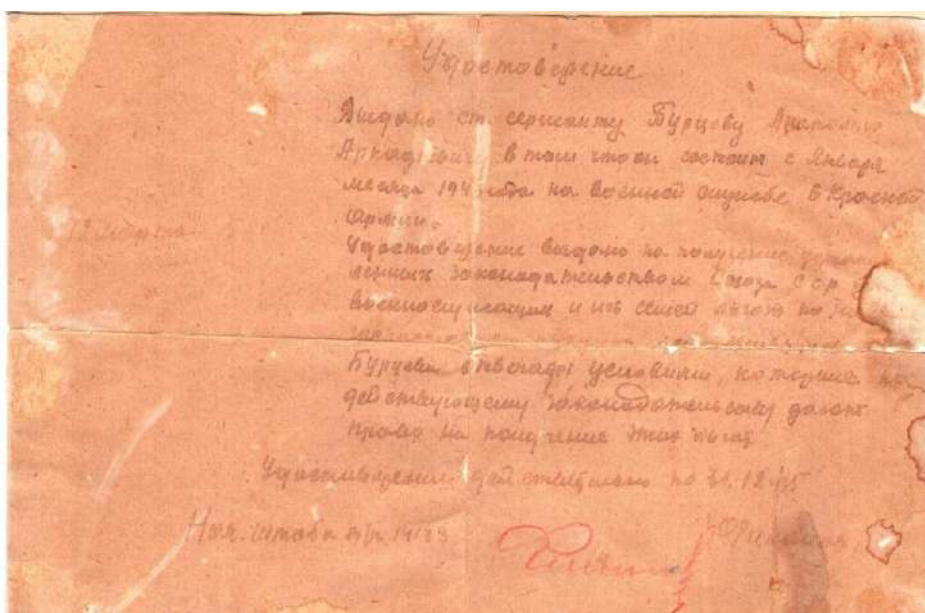 Удостоверение
Выдано ст. сержанту Бурцову Анатолию
Аркадьевичу в том что он состоит с Января
месяца 194 года на военной службе в Красной
Армии.
12 марта
Удостоверение выдано на получение
законодательством Союза ССР
военнослужащих и их семей льгот
Бурцова условиям, которые по
действующему законодательству дают
право на получение этих льгот
Удостоверение действительно по 31.12.45
Нач. штаба